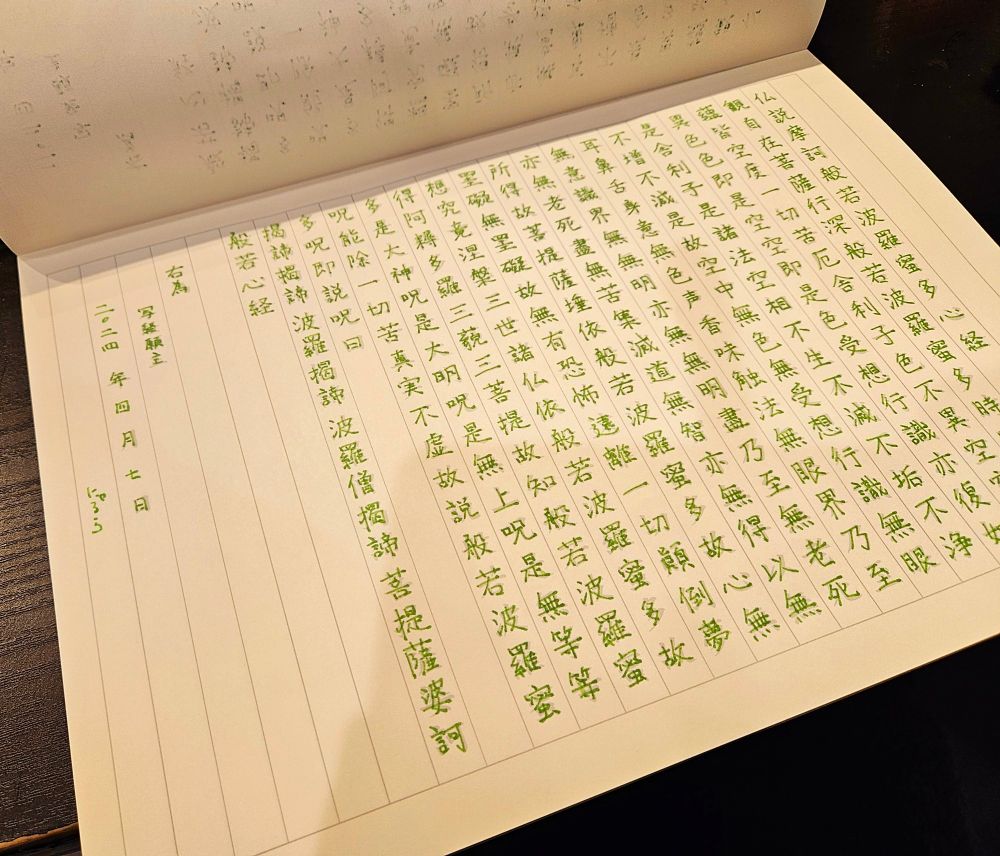 仏説摩訶般若波羅蜜多心経
観自在菩薩行深般若波羅蜜多時
蘊皆空度一切苦厄舎利子色不異空
異色色即是空空即是色受想行識亦復如
是舎利子是諸法空相不生不滅不垢不浄
不増不減是故空中無色無受想行識無眼
耳鼻舌身意無色声香味触法無眼界乃至
無意識界無無明亦無無明盡乃至無老死
亦無老死盡無苦集滅道無智亦無得以無
所得故菩提薩埵依般若波羅蜜多故心無
罣礙無罣礙故無有恐怖遠離一切顛倒夢
想究竟涅槃三世諸仏依般若波羅蜜多故
得阿耨多羅三藐三菩提故知般若波羅蜜
多是大神呪是大明呪是無上呪是無等等
呪能除一切苦真実不虚故説般若波羅蜜
多呪即説呪曰
揭諦揭諦 波羅揭諦 波羅僧揭諦 菩提薩婆訶
般若心経
右為
写経願主
二〇二四年四月七日